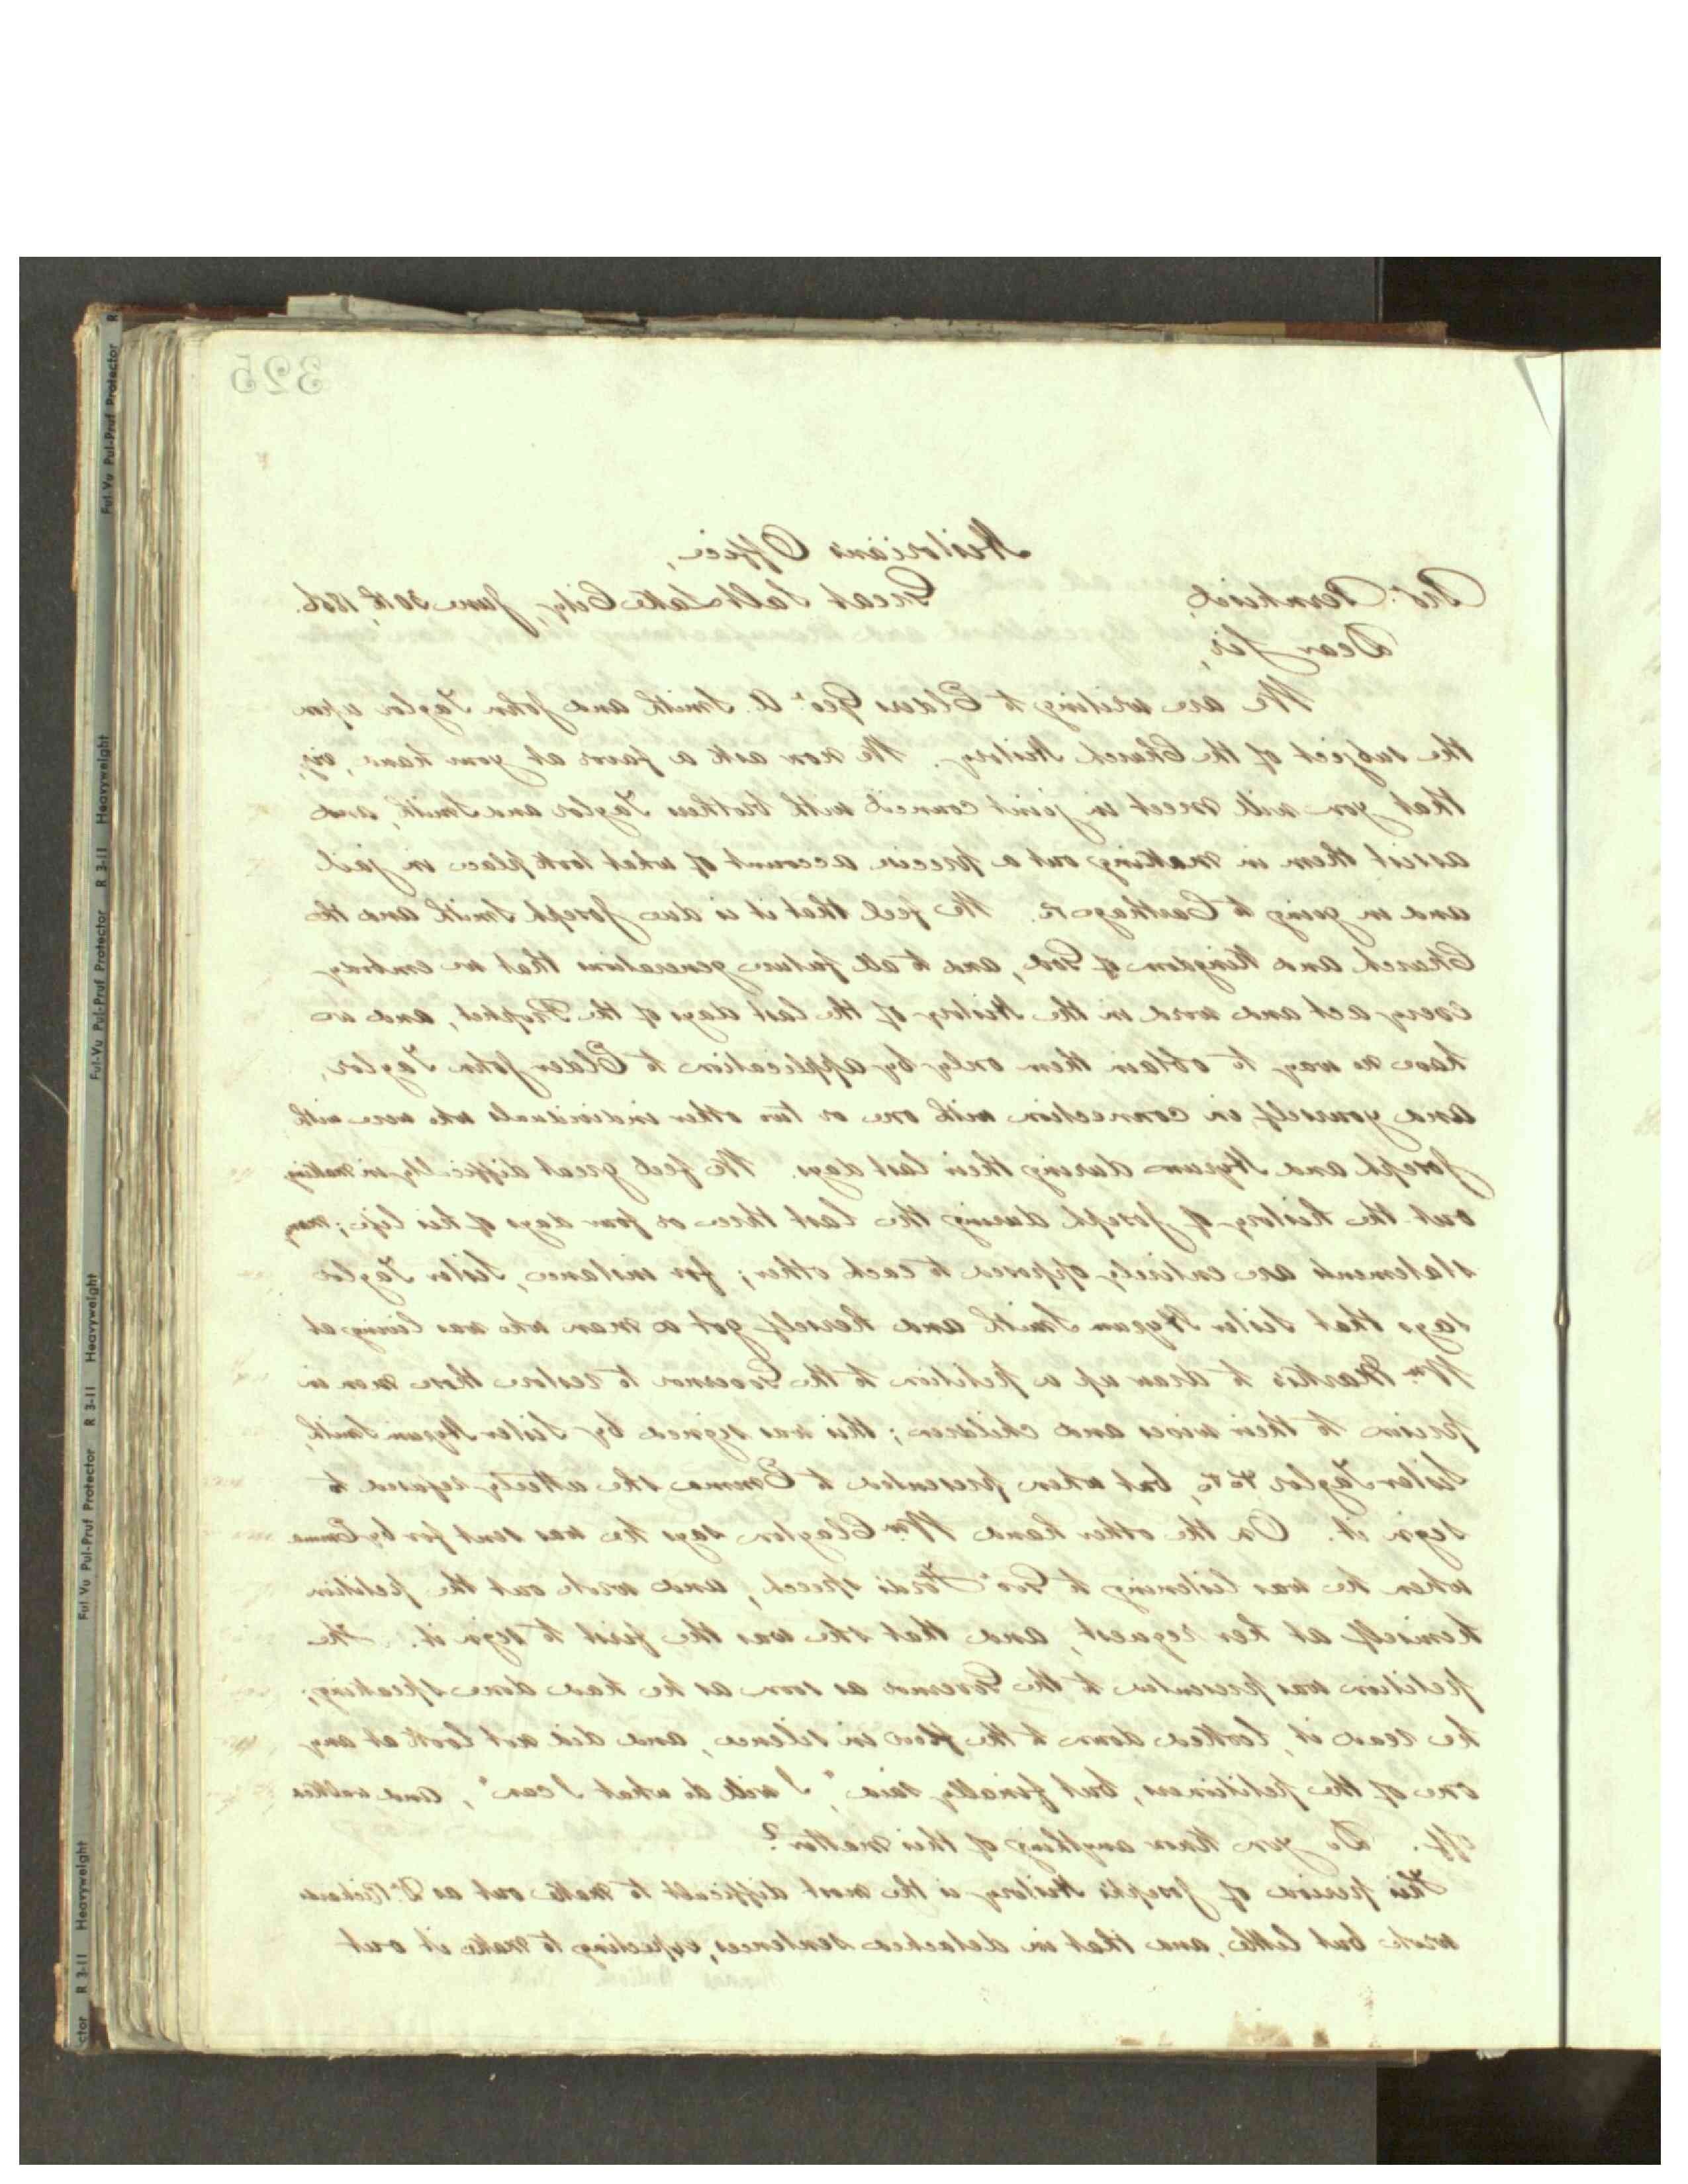 325
Historians Office,
Bro. Bernhisel, Great Salt Lake City, June 30th, 1856.
Dear Sir,
We are writing to Elders Geo. A. Smith and John Taylor upon
the subject of the Church History. We now ask a favor at your hand, viz;
that you will meet in joint council with brothers Taylor and Smith, and
assist them in making out a precise account of what took place in jail
and in going to Carthage &c. We feel that it is due Joseph Smith and the
Church and Kingdom of God, and to all future generations that we embody
every act and word in the History of the last days of the Prophet, and we
have no way to obtain them only by application to Elder John Taylor,
and yourself in connection with one or two other individuals who were with
Joseph and Hyrum during their last days. We feel great difficulty in making
out the history of Joseph during the last three or four days of his life; many
statements are entirely opposed to each other; for instance, Sister Taylor
says that Sister Hyrum Smith and herself got a man who was living at
Wm. Marks's to draw up a petition to the Governor to restore those men in
prison to their wives and children; this was signed by Sister Hyrum Smith,
Sister Taylor &c &c, but when presented to Emma she utterly refused to
sign it. On the other hand Wm. Clayton says he was sent for by Emma
when he was listening to Gov. Ford's speech, and wrote out the petition
himself at her request, and that she was the first to sign it. The
petition was presented to the Governor as soon as he had done speaking;
he read it, looked down to the floor in silence, and did not look at any
one of the petitioners, but finally said, "I will do what I can", and walked
off. Do you know anything of this matter?
This period of Joseph's History is the most difficult to make out as Dr. Richards
wrote but little, and that in detached sentences, expecting to make it out
Ful-Vu Pul-Pruf Protector R 3-11 Heavyweight